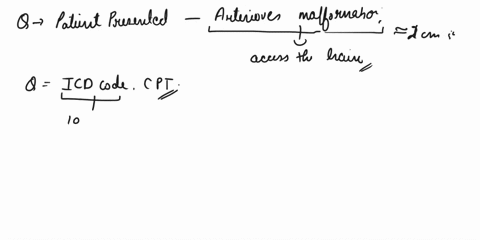 Q → Patient Presented — Arterioves malformation, ≈ 2 cm
access the brain
Q = ICD code. CPT.
10